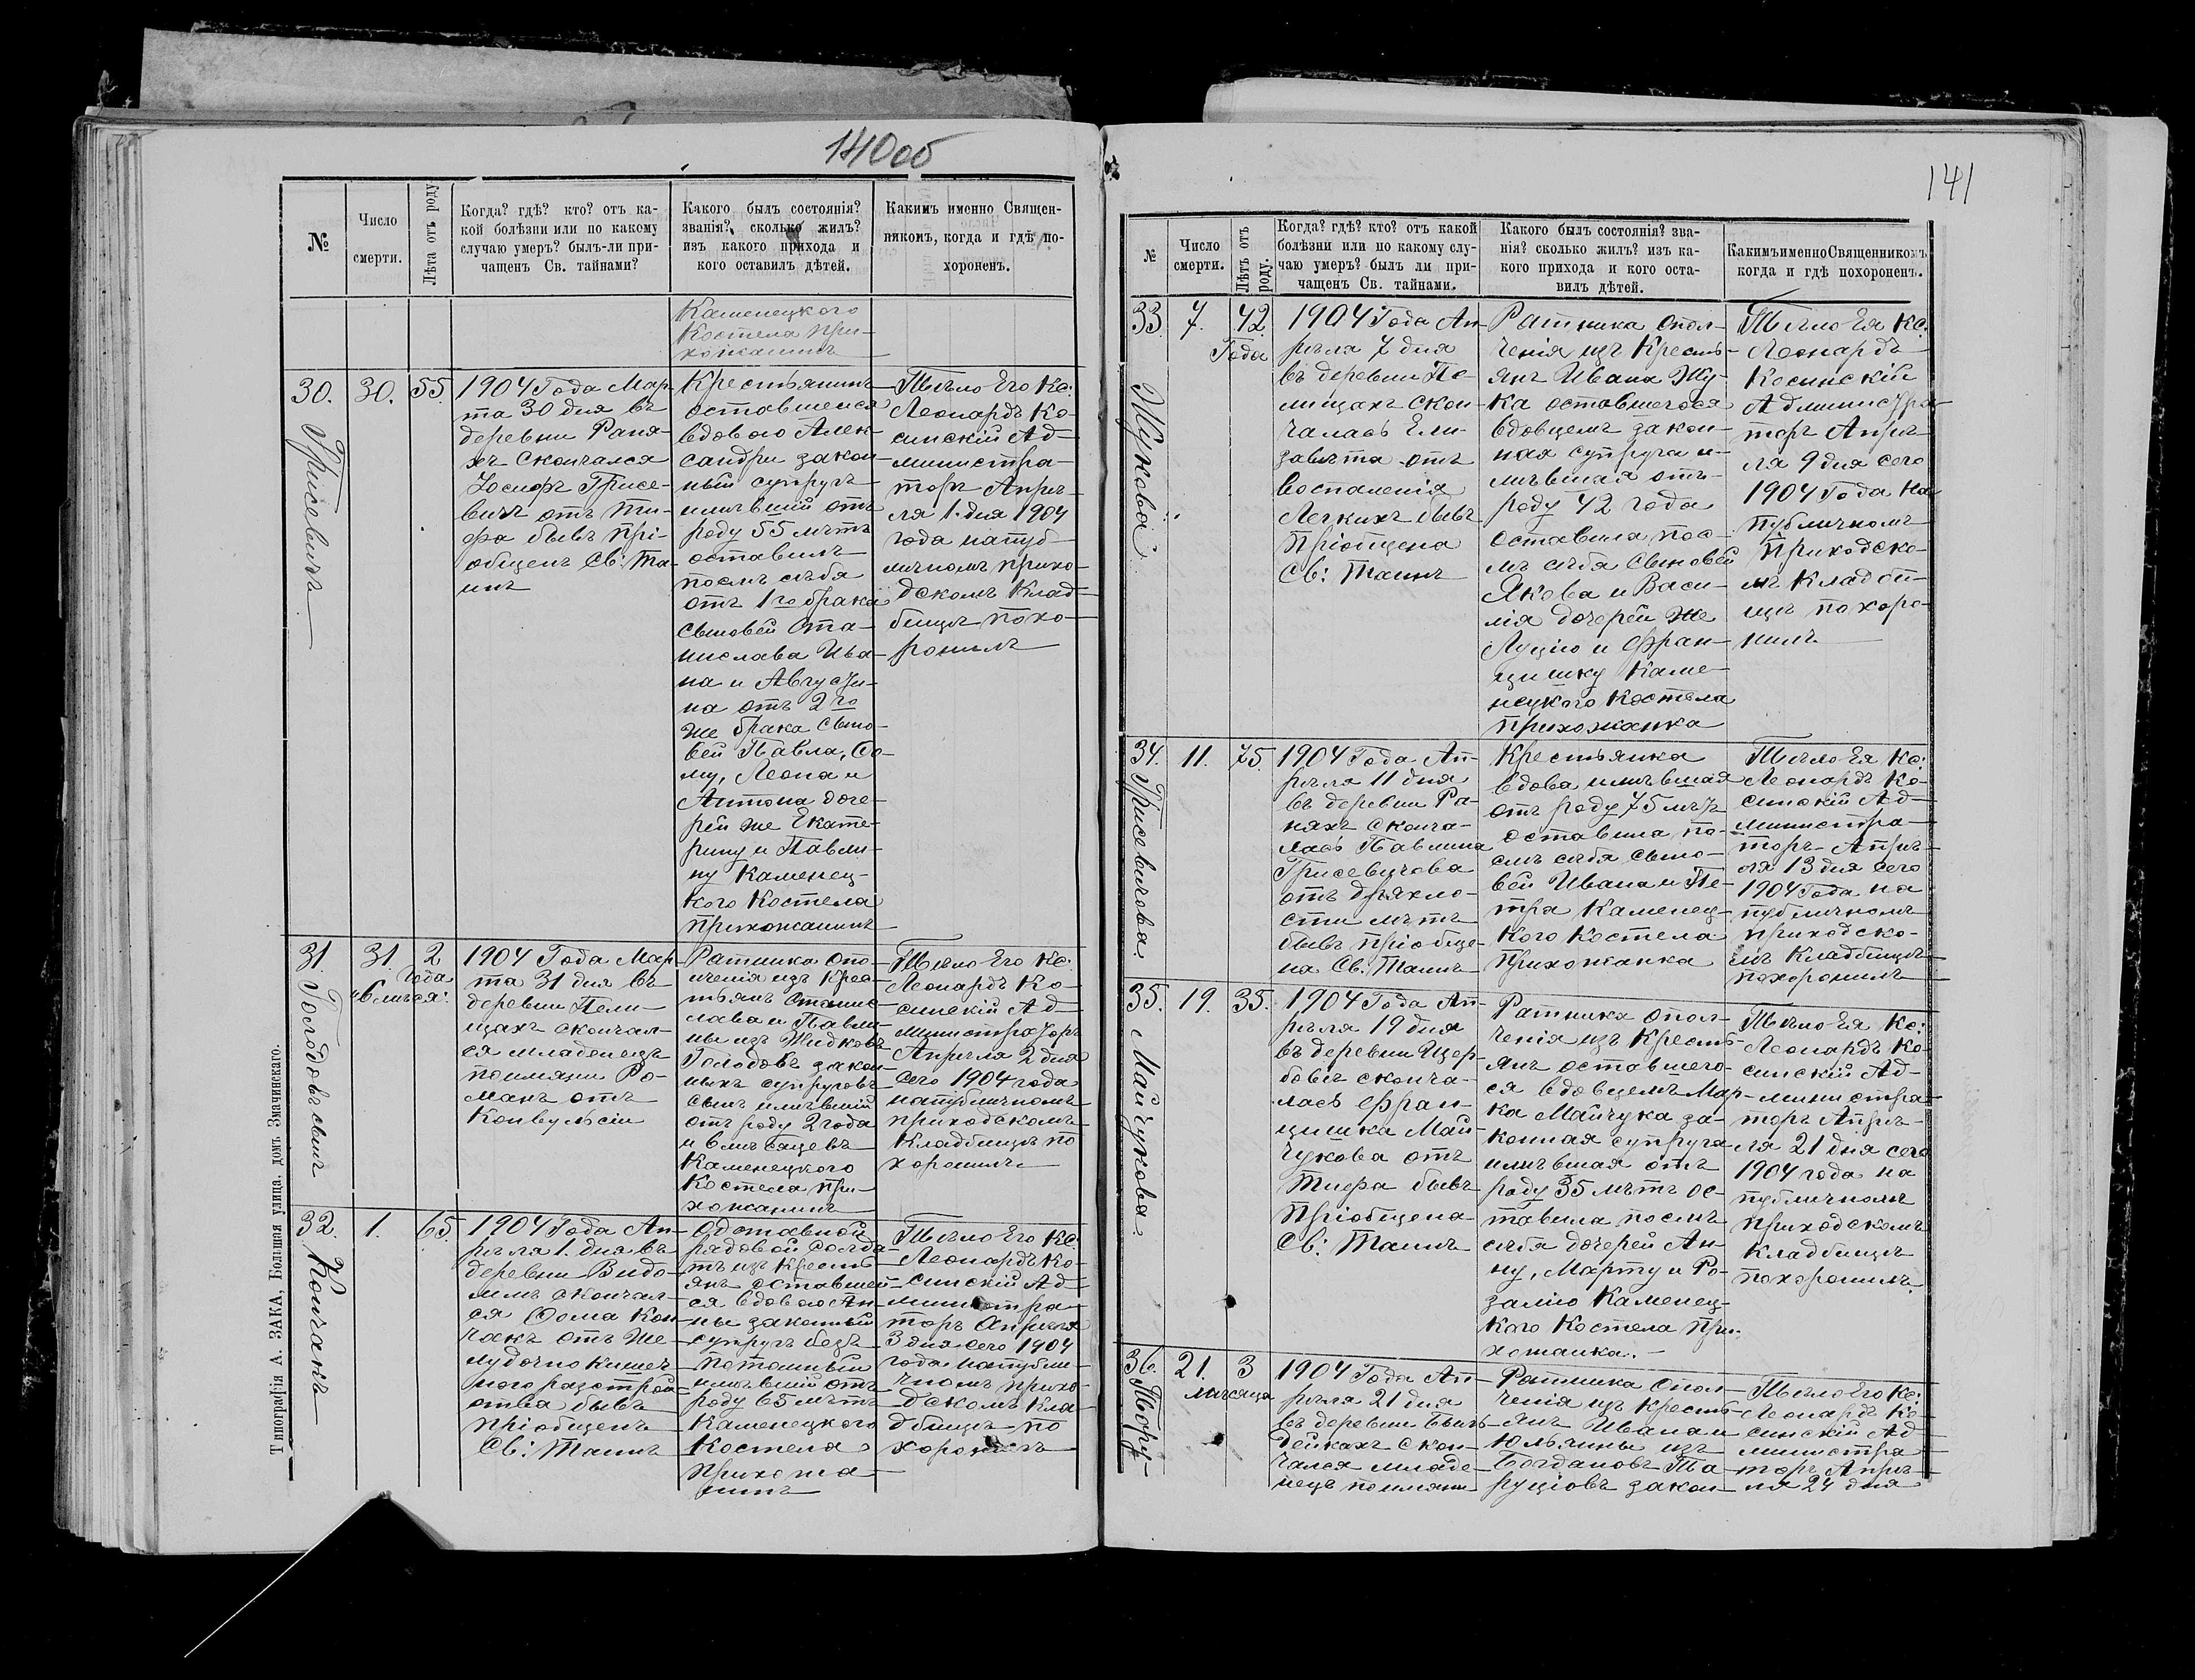 140 об
№
Число
смерти.
Лѣта отъ роду
Когда? гдѣ? кто? отъ ка-
кой болѣзни или по какому
случаю умеръ? былъ-ли при-
чащенъ Св. тайнами?
Какого былъ состоянія?
званія? сколько жилъ?
изъ какого прихода и
кого оставилъ дѣтей.
Какимъ именно Священ-
никомъ, когда и гдѣ по-
хороненъ.
Каменецкого
Костела при-
хожанинъ
30.
Грисевичъ
30.
55.
1904 Года Мар-
та 30 дня въ
деревни Раня-
хъ Скончался
Іосифъ Грисе-
вичъ отъ ти-
фа бывъ прі-
общенъ Св: Та-
инъ
Крестьянинъ
оставшейся
вдовою Алек-
сандри закон-
ный супругъ
имѣвшій отъ
роду 55 лѣтъ
оставилъ
послѣ себя
отъ 1го брака
сыновей Ста-
нислава Ива-
на и Августи-
на отъ 2го
же брака сыно-
вей Павла, Фо-
му, Леона и
Антона доче-
рей же Екате-
рину и Павли-
ну Каменец-
кого Костела
прихожанинъ
Тѣло Его Кс:
Леонардъ Ко-
синскій Ад-
министра-
торъ Апрѣ-
ля 1. дня 1904
года на пуб-
личномъ прихо-
дскомъ Клад-
бищѣ похо-
ронилъ
31.
31.
2
Года
и 6 мѣся:
1904 Года Мар-
та 31 дня въ
деревни Пели-
щахъ скончал-
ся младенецъ
по имяни Ро-
манъ отъ
Конвульсіи
Ратника опо-
лченія изъ Крес-
тьянъ Станис-
лава и Павли-
ны изъ Жидковъ
закон-
ныхъ супруговъ
сынъ имѣвшій
отъ роду 2 года
и 6 мѣсяцевъ
Каменецкого
Костела при-
хожанинъ
Тѣло Его Кс:
Леонардъ Ко-
синскій Ад-
министраторъ
Апрѣля 2 дня
сего 1904 года
на публичномъ
приходскомъ
Кладбищѣ по
хоронилъ
32.
Кончакъ
1.
65.
1904 Года Ап-
рѣля 1. дня въ
деревни Видо-
млѣ скончал-
ся Фома Кон-
чакъ отъ Же-
лудочно кишеч-
ного разстрой-
ства бывъ
пріобщенъ
Св: Таинъ
Отставной
рядовой солда-
тъ изъ Кресть-
янъ оставшей-
ся вдовою Ан-
ны законный
супругъ безъ
потомный
имѣвшій отъ
роду 65 лѣтъ
Каменецкого
Костела
прихожа-
нинъ
Тѣло Его Кс:
Леонардъ Ко-
синскій Ад-
министра-
торъ Апрѣля
3 дня сего 1904
года на публи-
чномъ прихо-
дскомъ Кла-
дбищѣ по
хоронилъ
Типографія А. ЗАКА, Большая улица. домъ Значинскаго.
141
№
Число
смерти.
Лѣтъ отъ
роду.
Когда? гдѣ? кто? отъ какой
болѣзни или по какому слу-
чаю умеръ? былъ ли при-
чащенъ Св. тайнами.
Какого былъ состоянія? зва-
нія? сколько жилъ? изъ ка-
кого прихода и кого оста-
вилъ дѣтей.
Какимъ именно Священникомъ
когда и гдѣ похороненъ.
33
Жукова
7.
42.
Года
1904 Года Ап-
рѣля 7 дня
въ деревни Пе-
лищахъ скон-
чалась Ели-
завѣта отъ
воспаленія
Легкихъ бывъ
Пріобщена
Св: Таинъ
Ратника Опол-
ченія изъ Кресть-
янъ Ивана Жу-
ка оставшегося
вдовцемъ закон-
ная супруга и-
мѣвшая отъ
роду 42 года
Оставила пос-
лѣ себя сыновей
Якова и Васи-
лія дочерей же
Луцію и Фран-
цишку Каме-
нецкого Костела
прихожанка
Тѣло Ея Кс:
Леонардъ
Косинскій
Администра-
торъ Апрѣ-
ля 9 дня сего
1904 Года на
публичномъ
Приходско-
мъ Кладби-
щѣ похоро-
нилъ
34.
Грисевичова.
11.
75.
1904 Года Ап-
рѣля 11 дня
въ деревни Ра-
няхъ сконча-
лась Павлина
Грисевичова
отъ дряхло-
сти лѣтъ
бывъ пріобще-
на Св: Таинъ
Крестьянка
вдова имѣвшая
отъ роду 75 лѣтъ
оставила по-
слѣ себя сыно-
вей Ивана и Пе-
тра Каменец-
кого Костела
Прихожанка
Тѣло Ея Кс:
Леонардъ Ко-
синскій Ад-
министра-
торъ Апрѣ-
ля 13 дня сего
1904 Года на
публичномъ
приходско-
мъ Кладбищѣ
похоронилъ
35.
Майчукова.
19.
35.
1904 Года Ап-
рѣля 19 дня
въ деревни Щер-
бовѣ сконча-
лась Фран-
цишка Май-
чукова отъ
Тифа бывъ
Пріобщена
Св: Таинъ
Ратника опол-
ченія изъ Кресть-
янъ оставшего-
ся вдовцемъ Мар-
ка Майчука за-
конная супруга
имѣвшая отъ
роду 35 лѣтъ ос-
тавила послѣ
себя дочерей Ан-
ну, Марту и Ро-
залію Каменец-
кого Костела При-
хожанка.
Тѣло Ея Кс:
Леонардъ Ко-
синскій Ад-
министра-
торъ Апрѣ-
ля 21 дня сего
1904 года на
публичномъ
приходскомъ
Кладбищѣ
похоронилъ.
36.
21.
3
мѣсяца
1904 Года Ап-
рѣля 21 дня
въ деревни
скон-
чался младе-
нецъ по имяни
Ратника Опол-
ченія изъ Кресть-
янъ Ивана и
Юльянны изъ
Богдановъ
закон-
Тѣло Его Кс:
Леонардъ Ко-
синскій Ад-
министра-
торъ Апрѣ-
ля 24 дня